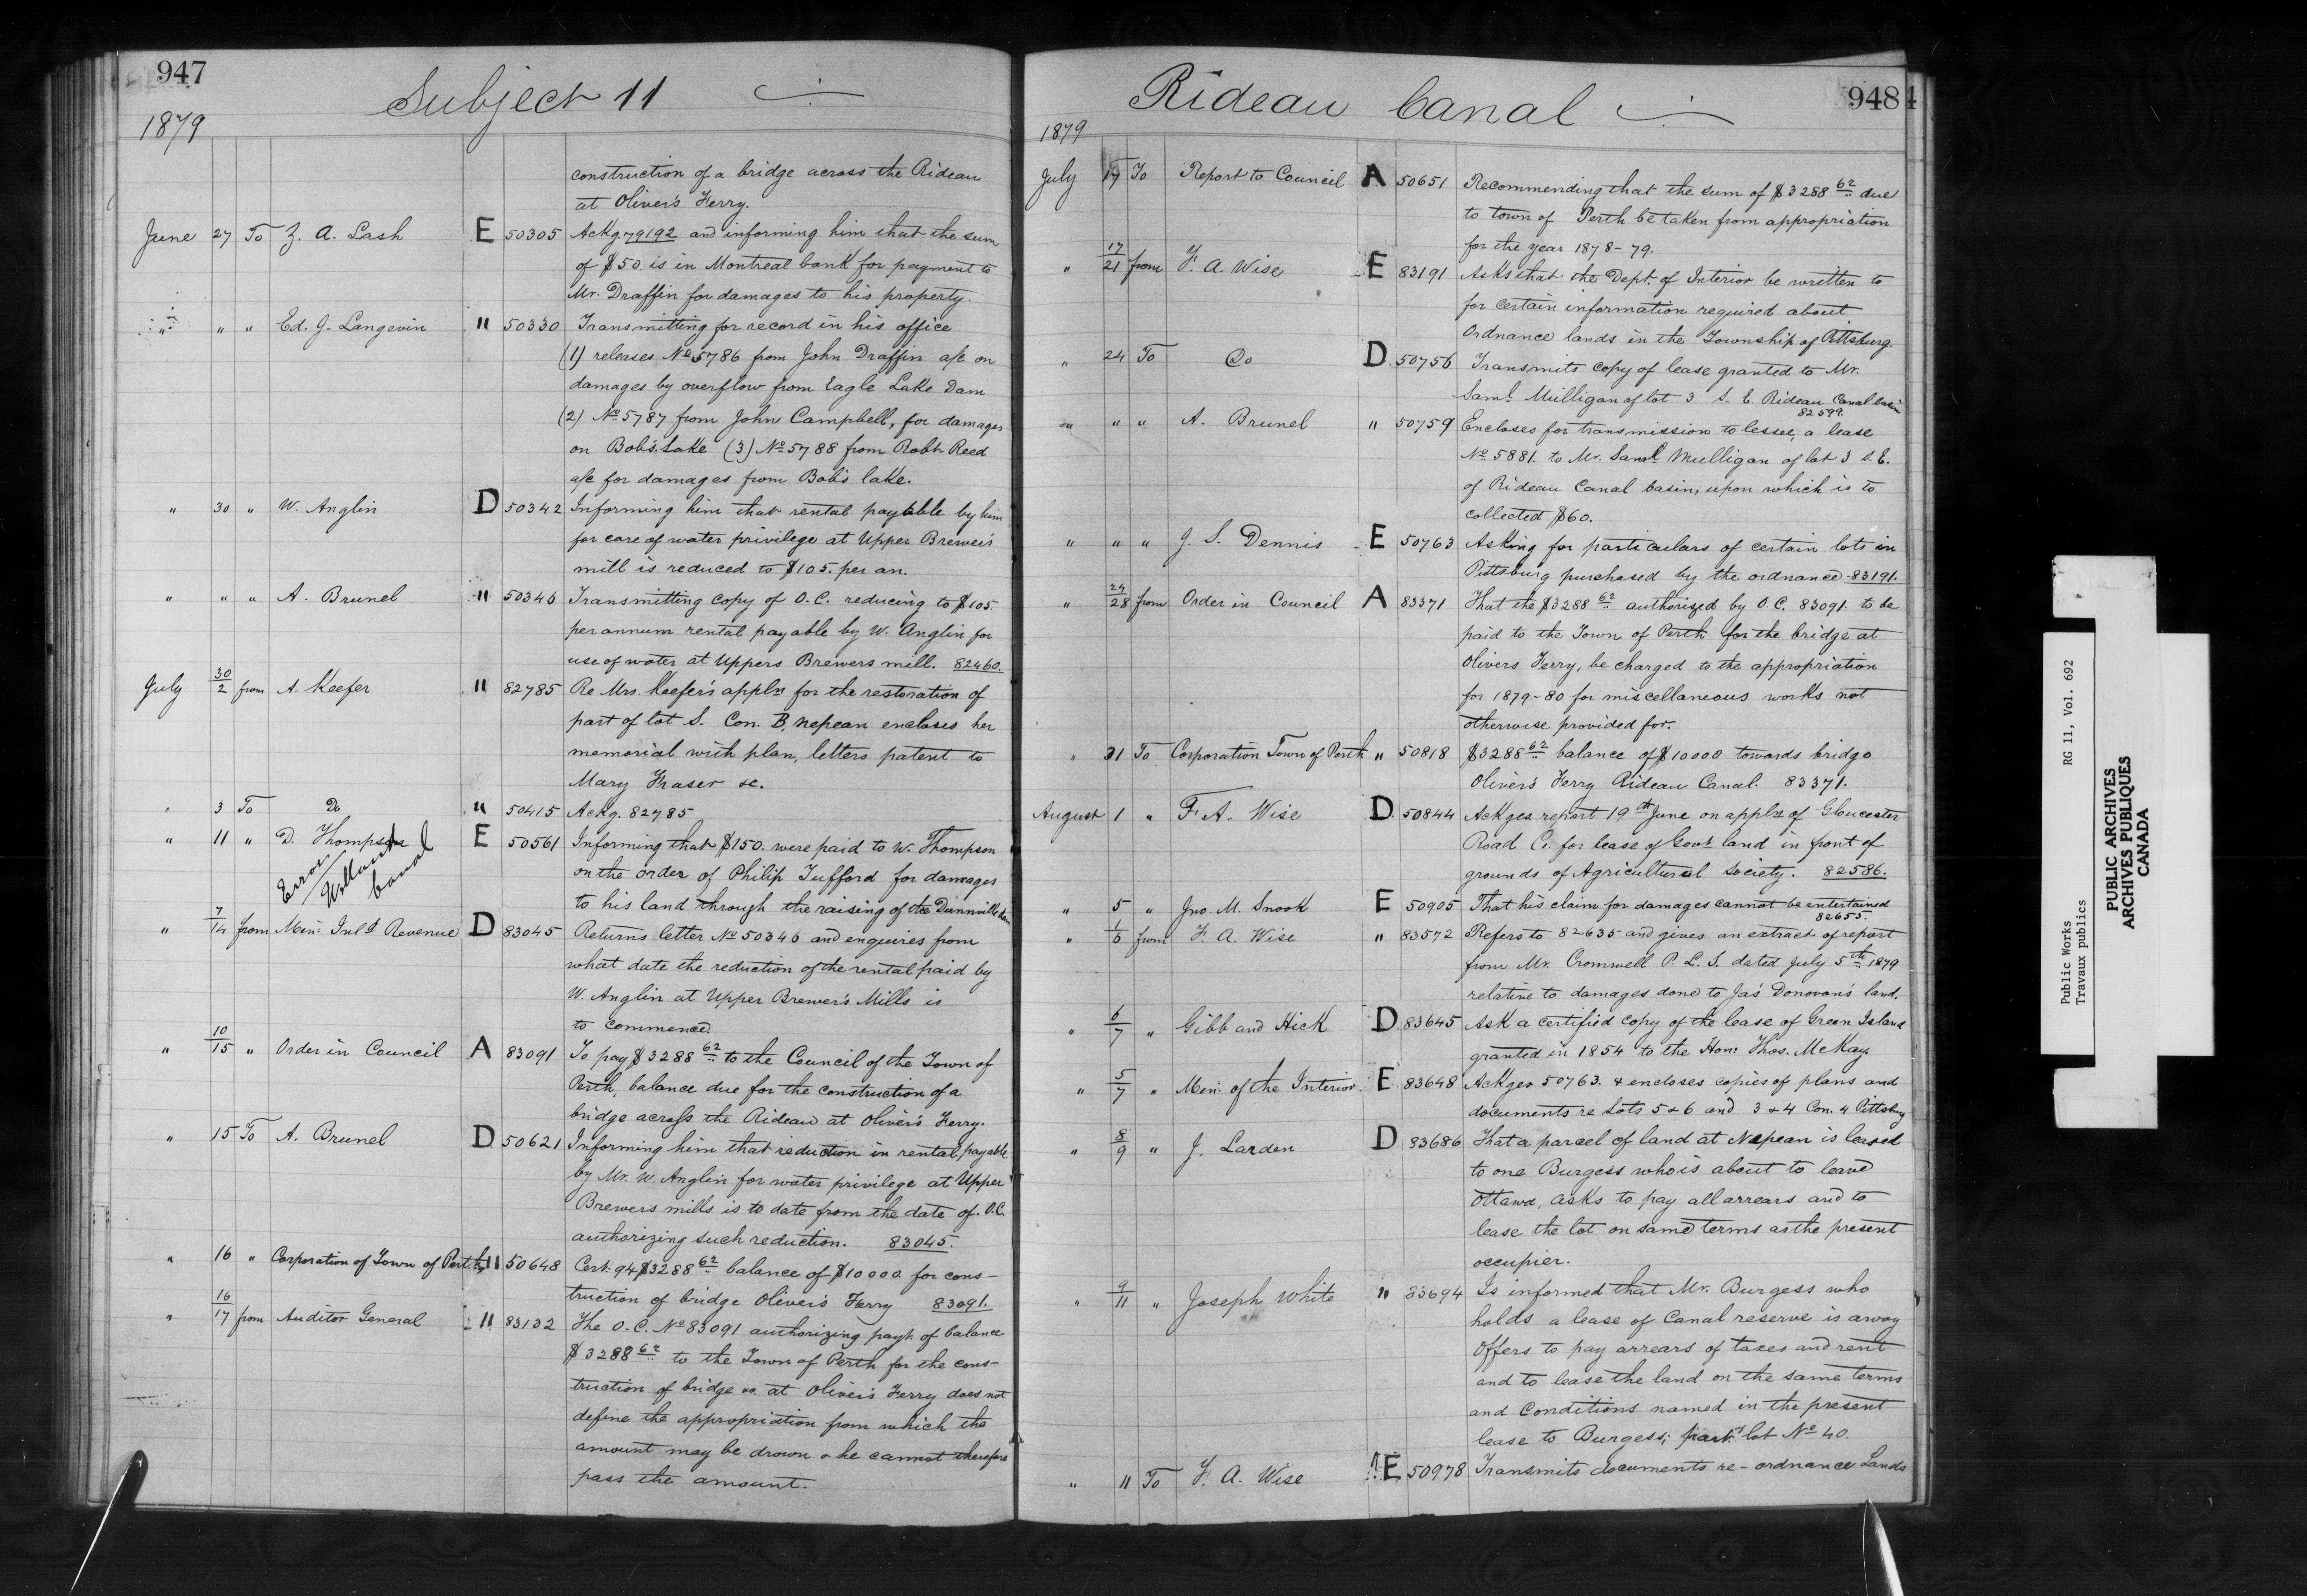 947
Subject 11
1879
construction of a bridge across the Rideau
at Oliver's Ferry.
June 27 To Z. A. Lash E 50305 Ackg. 79192 and informing him that the sum
of $50. is in Montreal bank for payment to
Mr. Draffin for damages to his property.
" " " Ed. J. Langevin " 50330 Transmitting for record in his office
(1) releases No 5786 from John Draffin a/c on
damages by overflow from Eagle Lake Dam
(2) No 5787 from John Campbell, for damages
on Bob's Lake (3) No 5788 from Robt Reed
a/c for damages from Bob's lake.
" 30 " W. Anglin D 50342 Informing him that rental payable by him
for care of water privilege at Upper Brewer's
mill is reduced to $105. per an.
" " " A. Brunel " 50346 Transmitting copy of O.C. reducing to $105
per annum rental payable by W. Anglin for
use of water at Uppers Brewers mill. 82460.
July 30/2 from A. Keefer " 82785 Re Mrs. Keefer's appln for the restoration of
part of lot S. Con. B, Nepean encloses her
memorial with plan, letters patent to
Mary Fraser &c.
" 3 To Do " 50415 Ackg. 82785
" 11 " D. Thompson E 50561 Informing that $150. were paid to W. Thompson
Error Welland Canal
on the order of Philip Tufford for damages
to his land through the raising of the Dunnville dam
" 7/14 from Min. Inld Revenue D 83045 Returns letter No 50346 and enquires from
what date the reduction of the rental paid by
W. Anglin at Upper Brewer's Mills is
to commence.
" 10/15 " Order in Council A 83091 To pay $3288 62 to the Council of the Town of
Perth, balance due for the construction of a
bridge across the Rideau at Oliver's Ferry.
" 15 To A. Brunel D 50621 Informing him that reduction in rental, payable
by Mr. W. Anglin for water privilege at Upper
Brewers mills is to date from the date of O.C.
authorizing such reduction. 83045.
" 16 " Corporation of Town of Perth " 50648 Cert. 94 $3288 62 balance of $10000 for cons-
truction of bridge Oliver's Ferry 83091.
" 16/17 from Auditor General " 83132 The O.C. No 83091 authorizing payt. of balance
$3288 62 to the Town of Perth for the cons-
truction of bridge &c. at Oliver's Ferry does not
define the appropriation from which the
amount may be drawn & he cannot therefore
pass the amount.
Rideau Canal
9484
1879
July 17 To Report to Council A 50651 Recommending that the sum of $3288 62 due
to town of Perth be taken from appropriation
for the year 1878-79.
" 17/21 from F. A. Wise E 83191 Asks that the Dept. of Interior be written to
for certain information required about
Ordnance lands in the Township of Pittsburg.
" 24 To Do D 50756 Transmits copy of lease granted to Mr.
Saml. Mulligan of lot 3 S. E. Rideau Canal basin
82599.
" " " A. Brunel " 50759 Encloses for transmission to lessee, a lease
No 5881. to Mr. Saml Mulligan of lot 3 S.E.
of Rideau Canal basin, upon which is to
collected $60.
" " " J. S. Dennis E 50763 Asking for particulars of certain lots in
Pittsburg purchased by the ordnance 83191.
" 24/28 from Order in Council A 83371 That the $3288 62 authorized by O.C. 83091. to be
paid to the Town of Perth for the bridge at
Olivers Ferry, be charged to the appropriation
for 1879-80 for miscellaneous works not
otherwise provided for.
" 31 To Corporation Town of Perth " 50818 $3288 62 balance of $10000 towards bridge
Oliver's Ferry Rideau Canal. 83371.
August 1 " F. A. Wise D 50844 Ackges report 19th June on appln of Gloucester
Road Co. for lease of Govt land in front of
grounds of Agricultural Society. 82586.
" 5 " Jno M. Snook E 50905 That his claim for damages cannot be entertained
82655.
" 1/6 from F. A. Wise " 83572 Refers to 82635 and gives an extract of report
from Mr. Cromwell P. L. S. dated July 5th 1879
relative to damages done to Jas Donovan's land.
" 6/7 " Gibb and Hick D 83645 Ask a certified copy of the lease of Green Island
granted in 1854 to the Hon: Thos. McKay.
" 5/7 " Min. of the Interior E 83648 Ackges 50763. & encloses copies of plans and
documents re Lots 5 & 6 and 3 & 4 Con. 4 Pittsburg
" 8/9 " J. Larden D 83686 That a parcel of land at Nepean is leased
to one Burgess who is about to leave
Ottawa, asks to pay all arrears and to
lease the lot on same terms as the present
occupier.
" 9/11 " Joseph White " 83694 Is informed that Mr. Burgess who
holds a lease of Canal reserve is away
Offers to pay arrears of taxes and rent
and to lease the land on the same terms
and conditions named in the present
lease to Burgess; part lot No 40.
" 11 To F. A. Wise E 50978 Transmits documents re-ordnance Lands
Public Works RG 11, Vol. 692
Travaux publics
PUBLIC ARCHIVES
ARCHIVES PUBLIQUES
CANADA